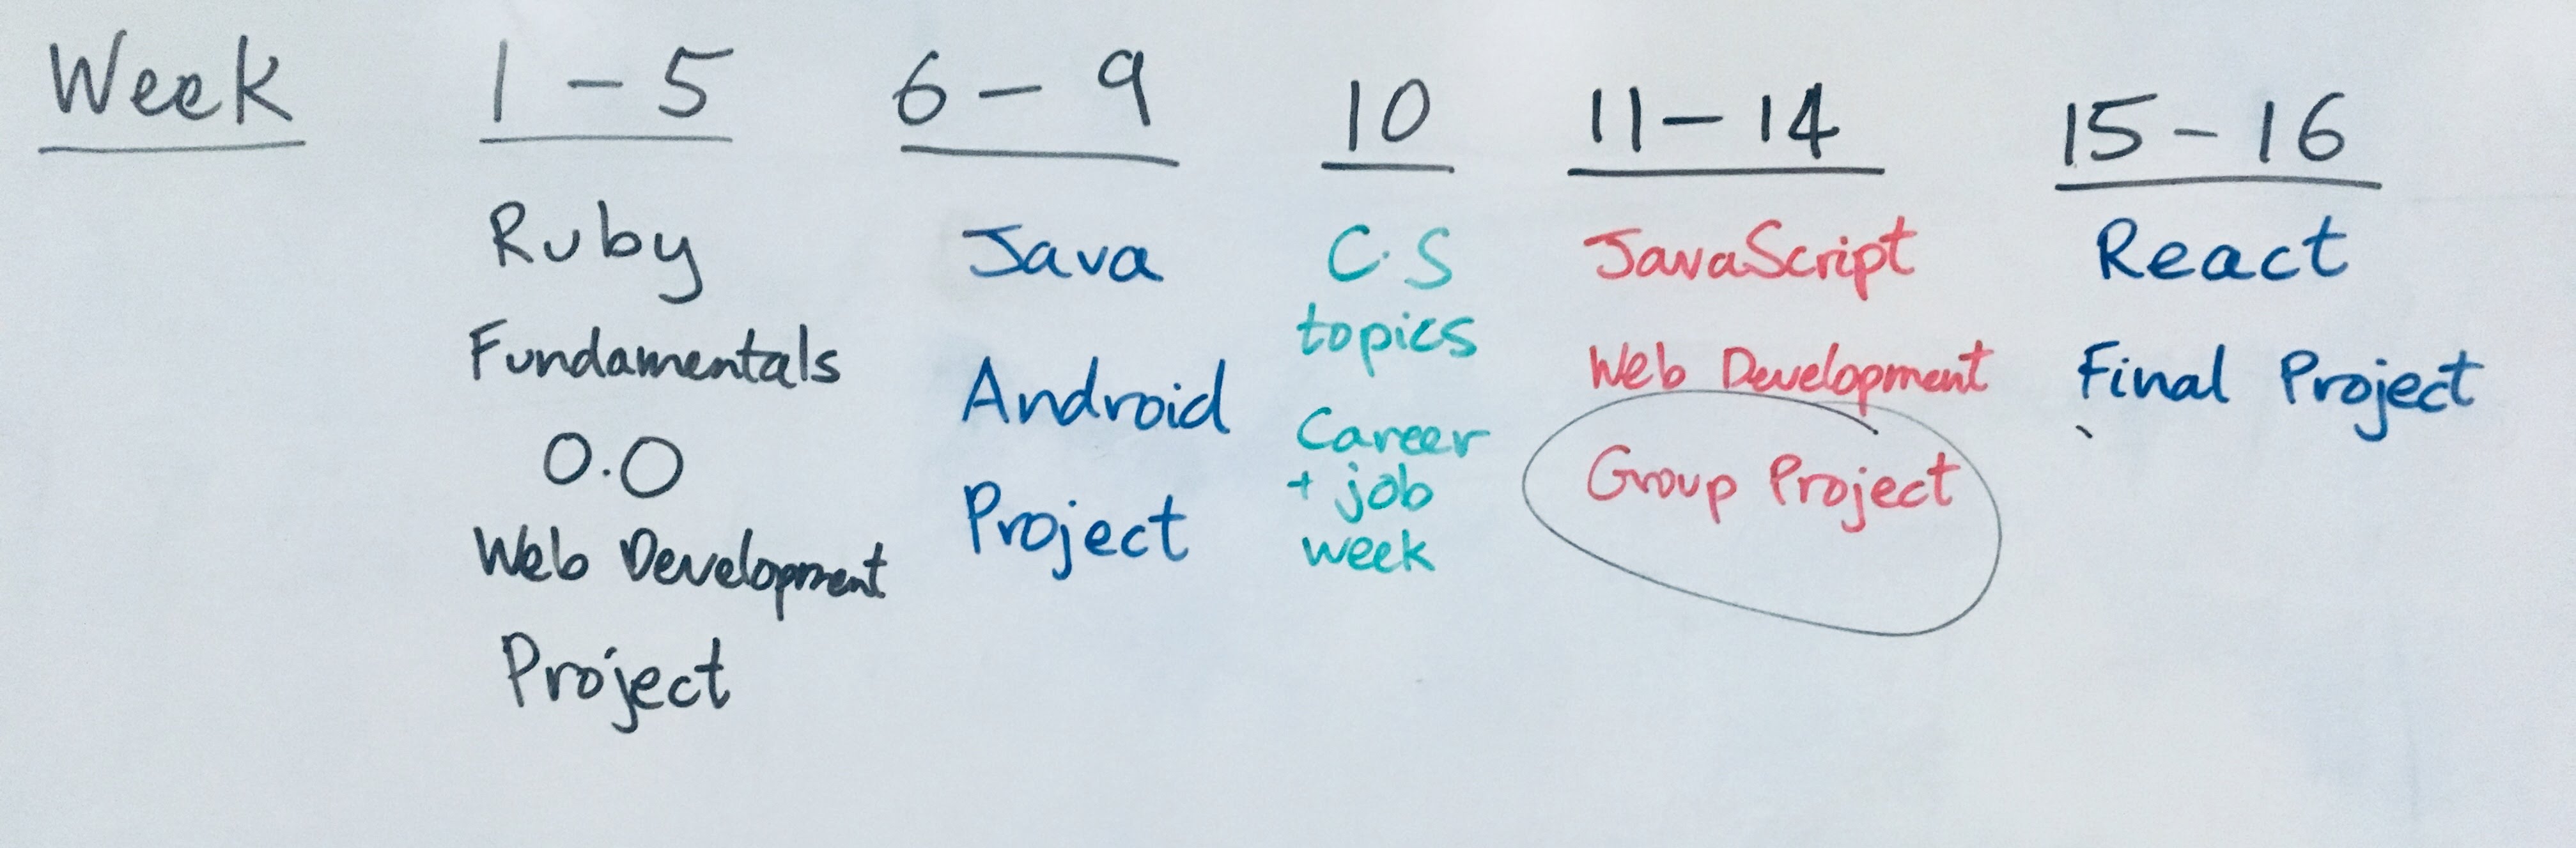 Week 1-5 6-9 10 11-14 15-16
Ruby
Fundamentals
O.O
Web Development
Project
Java
Android
Project
C.S
topics
Career
+ job
week
JavaScript
Web Development
Group Project
React
Final Project